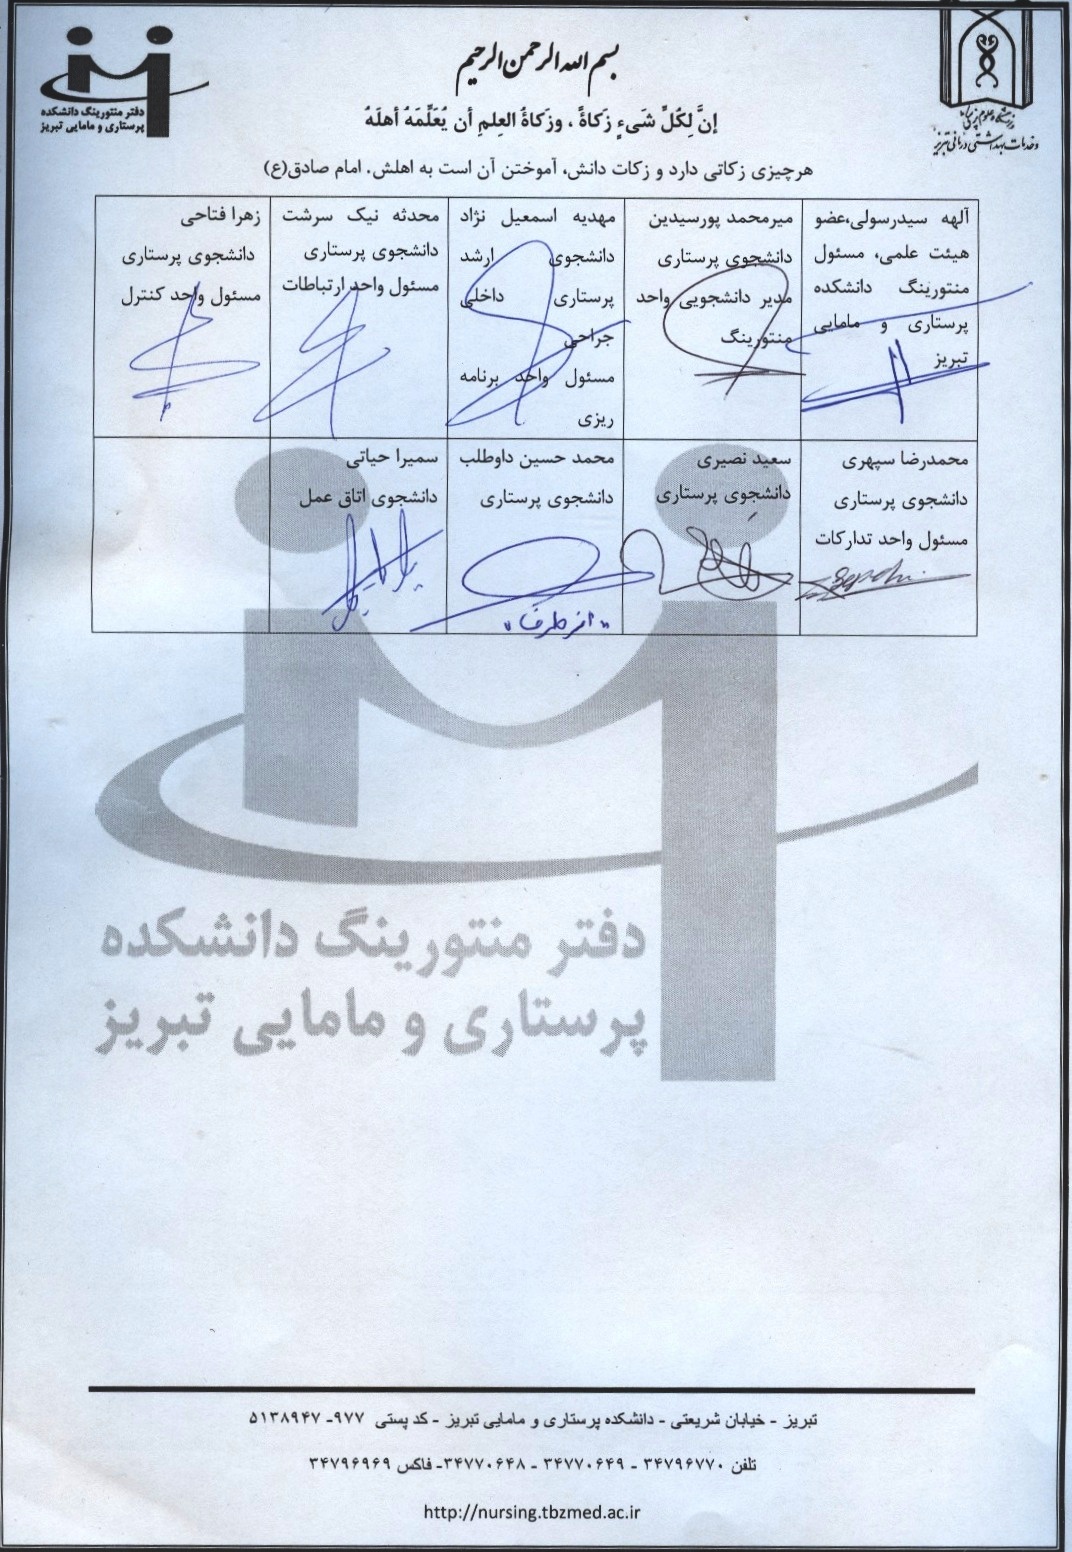 بسم الله الرحمن الرحیم
دفتر منتورینگ دانشکده
پرستاری و مامایی تبریز
دانشگاه علوم پزشکی
و خدمات بهداشتی درمانی تبریز
إنَّ لِكُلِّ شَيءٍ زَكاةً ، وزَكاةُ العِلمِ أن يُعَلِّمَهُ أهلَهُ
هرچیزی زکاتی دارد و زکات دانش، آموختن آن است به اهلش. امام صادق(ع)
آلهه سیدرسولی،عضو
هیئت علمی، مسئول
منتورینگ دانشکده
پرستاری و مامایی
تبریز
میرمحمد پورسیدین
دانشجوی پرستاری
مدیر دانشجویی واحد
منتورینگ
مهدیه اسمعیل نژاد
دانشجوی ارشد
پرستاری داخلی
جراحی
مسئول واحد برنامه
ریزی
محدثه نیک سرشت
دانشجوی پرستاری
مسئول واحد ارتباطات
زهرا فتاحی
دانشجوی پرستاری
مسئول واحد کنترل
محمدرضا سپهری
دانشجوی پرستاری
مسئول واحد تدارکات
سعید نصیری
دانشجوی پرستاری
محمد حسین داوطلب
دانشجوی پرستاری
"از طرف"
سمیرا حیاتی
دانشجوی اتاق عمل
دفتر منتورینگ دانشکده
پرستاری و مامایی تبریز
تبریز - خیابان شریعتی - دانشکده پرستاری و مامایی تبریز - کد پستی ۹۷۷- ۵۱۳۸۹۴۷
تلفن ۳۴۷۹۶۷۷۰ - ۳۴۷۷۰۶۴۹ - ۳۴۷۷۰۶۴۸- فاکس ۳۴۷۹۶۹۶۹
http://nursing.tbzmed.ac.ir